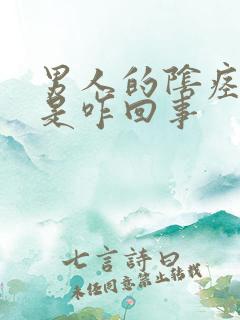 男人的陰痉
是咋回事
七言詩曰
未任同意禁止转载